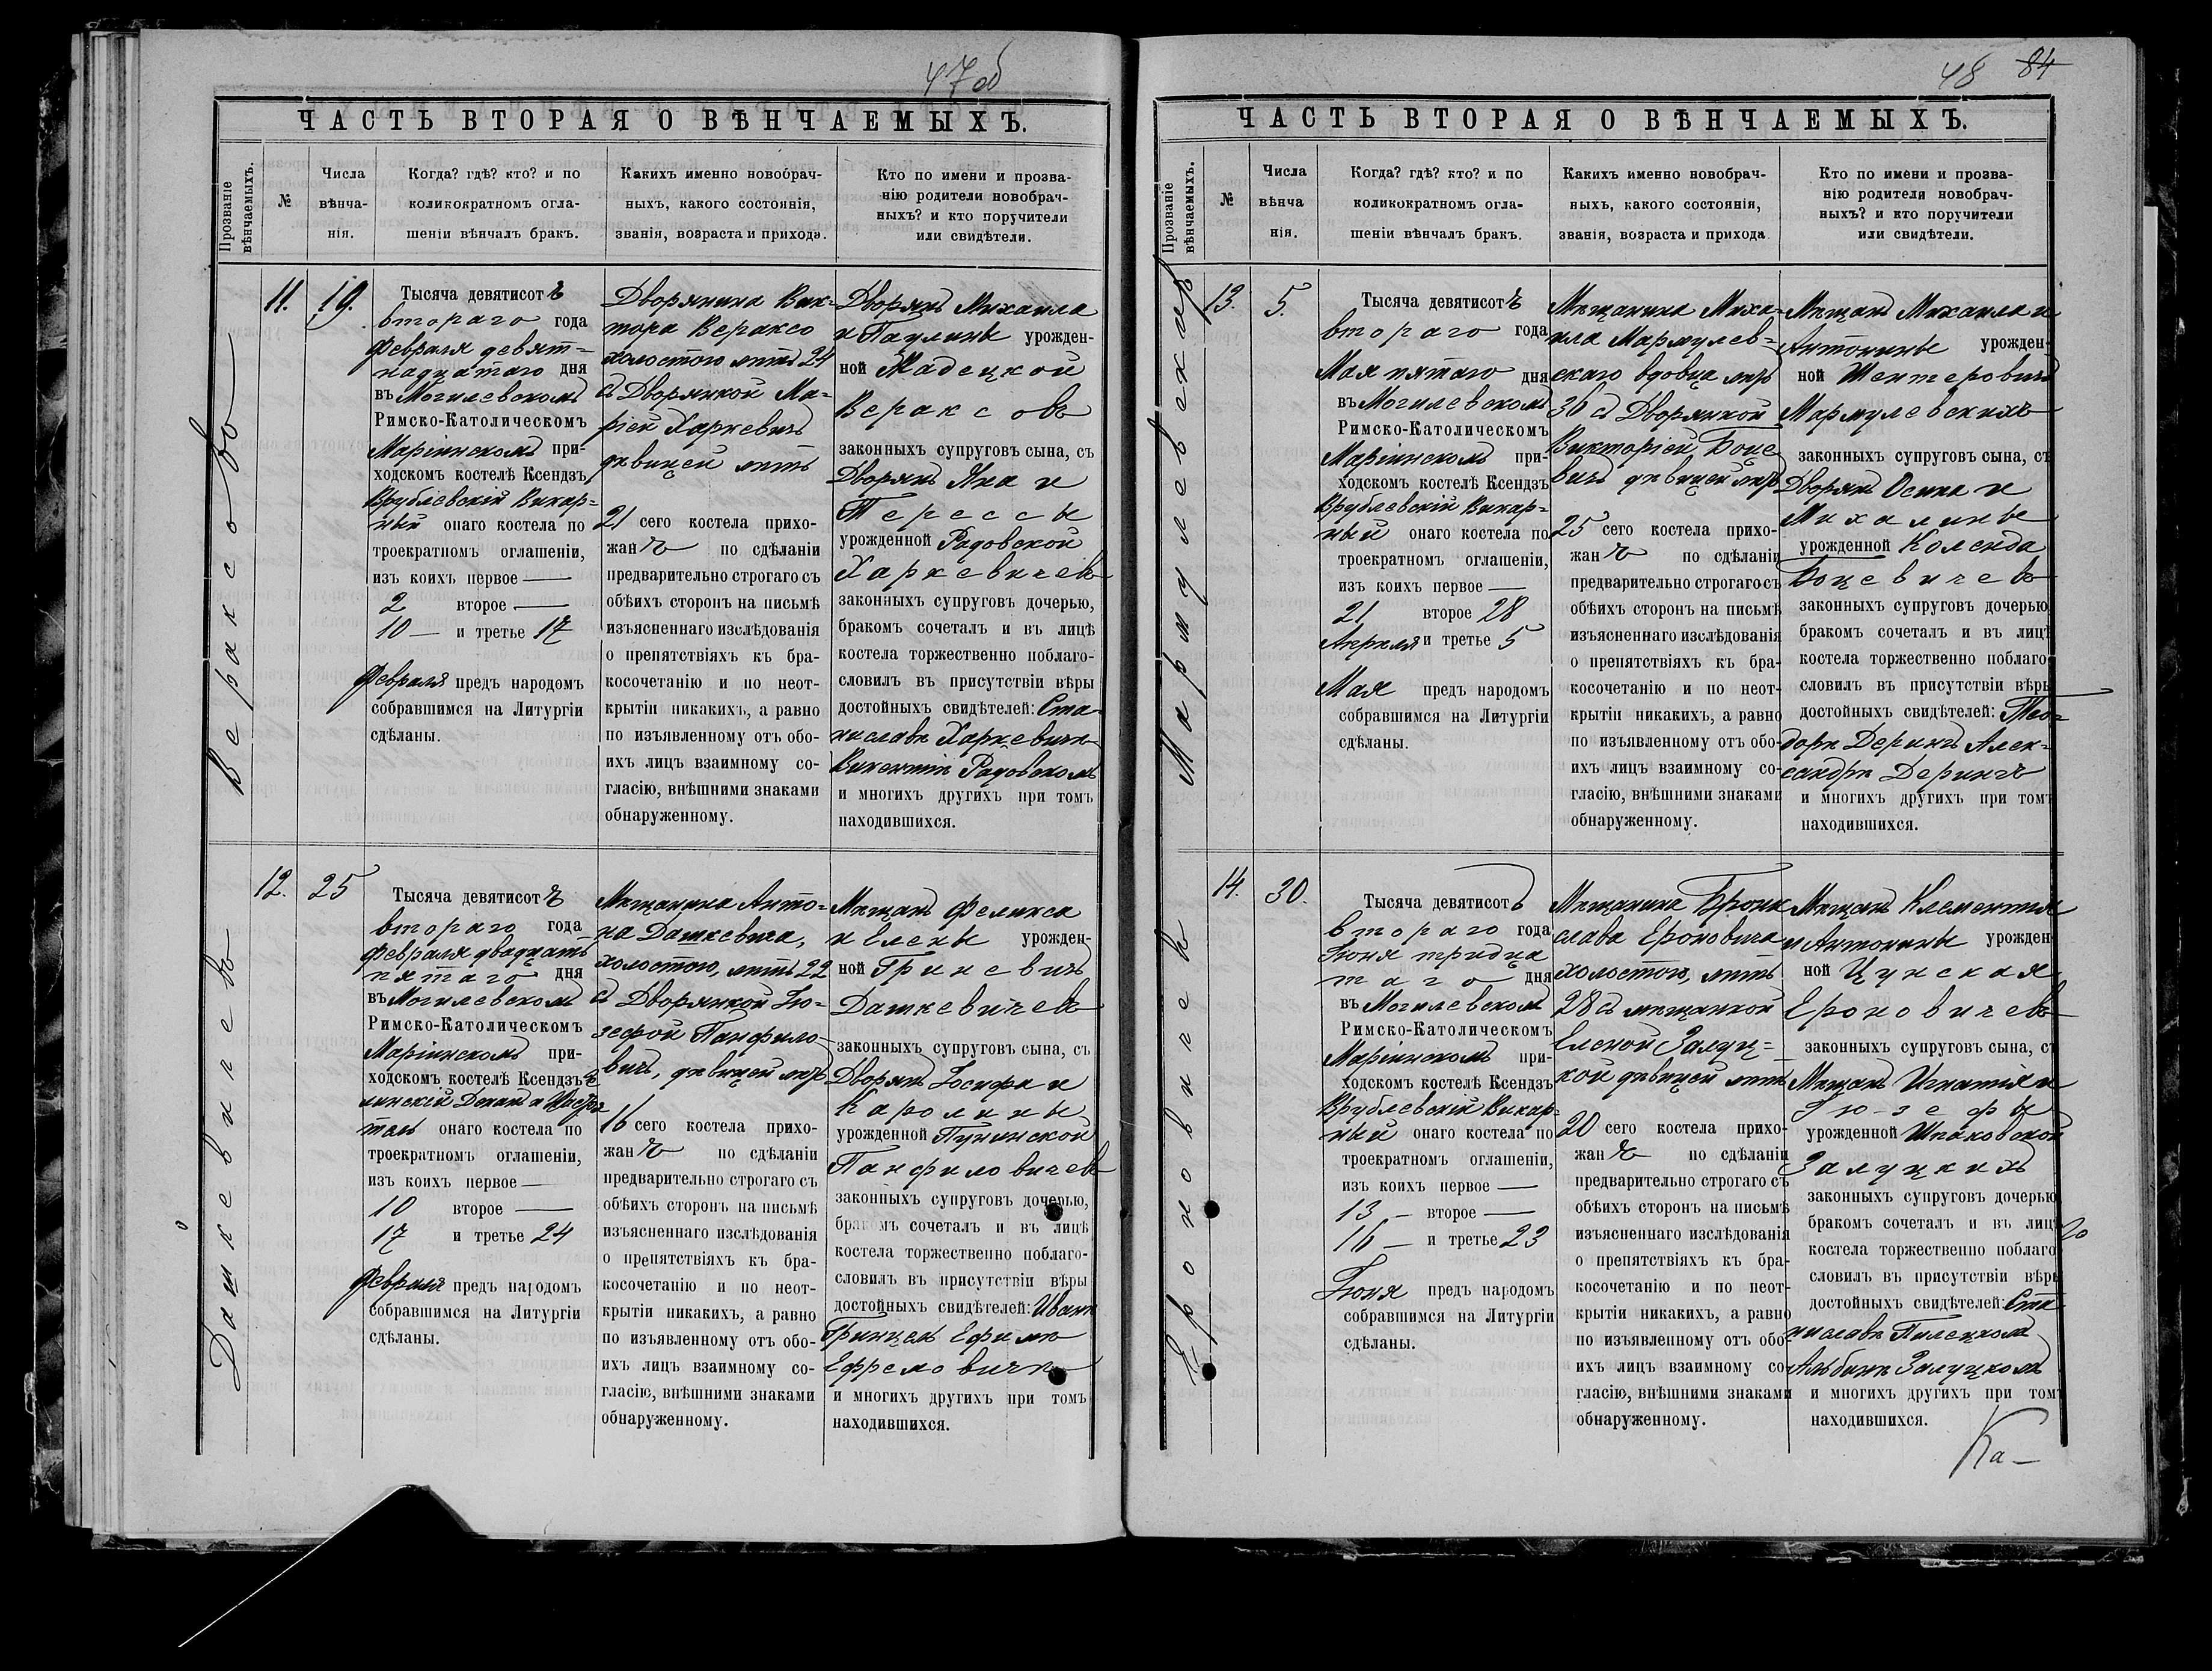 47 об
ЧАСТЬ ВТОРАЯ О ВѢНЧАЕМЫХЪ.
Прозваніе вѣнчаемыхъ.
№
Числа вѣнча-
нія.
Когда? гдѣ? кто? и по
коликократномъ огла-
шеніи вѣнчалъ бракъ.
Какихъ именно новобрач-
ныхъ, какого состоянія,
званія, возраста и прихода.
Кто по имени и прозва-
нію родители новобрач-
ныхъ? и кто поручители
или свидѣтели.
Вераксовъ
11.
19.
Тысяча девятисотъ
втораго года
Февраля девят-
надцатаго дня
въ Могилевскомъ
Римско-Католическомъ
Маріинскомъ при-
ходскомъ костелѣ Ксендзъ
Врублевскій Викар-
ный онаго костела по
троекратномъ оглашеніи,
изъ коихъ первое —
2 второе —
10 — и третье 17
Февраля предъ народомъ
собравшимся на Литургіи
сдѣланы.
Дворянина Вик-
тора Вераксо
холостого лѣтъ 24
съ Дворянкой Ма-
ріей Харкевичъ
дѣвицей лѣтъ
21 сего костела прихо-
жанъ по сдѣланіи
предварительно строгаго съ
обѣихъ сторонъ на письмѣ
изъясненнаго изслѣдованія
о препятствіяхъ къ бра-
косочетанію и по неот-
крытіи никакихъ, а равно
по изъявленному отъ обо-
ихъ лицъ взаимному со-
гласію, внѣшними знаками
обнаруженному.
Дворянъ Михаила
и Паулины урожден-
ной Жадецкой
Вераксовъ
законныхъ супруговъ сына, съ
Дворянъ Яна и
Терессы
урожденной Радовской
Харкевичевъ
законныхъ супруговъ дочерью,
бракомъ сочеталъ и въ лицѣ
костела торжественно поблаго-
словилъ въ присутствіи вѣры
достойныхъ свидѣтелей: Ста-
ниславѣ Харкевичѣ
Викентіѣ Радовскомъ
и многихъ другихъ при томъ
находившихся.
Дашкевичевъ
12.
25
Тысяча девятисотъ
втораго года
Февраля двадцать
пятаго дня
въ Могилевскомъ
Римско-Католическомъ
Маріинскомъ при-
ходскомъ костелѣ Ксендзъ
Деканъ и
онаго костела по
троекратномъ оглашеніи,
изъ коихъ первое —
10 второе —
17 и третье 24
Февраля предъ народомъ
собравшимся на Литургіи
сдѣланы.
Мѣщанина Анто-
на Дашкевича,
холостого, лѣтъ 22
съ Дворянкой Іо-
зефой Панфило-
вичъ, дѣвицей лѣтъ
16 сего костела прихо-
жанъ по сдѣланіи
предварительно строгаго съ
обѣихъ сторонъ на письмѣ
изъясненнаго изслѣдованія
о препятствіяхъ къ бра-
косочетанію и по неот-
крытіи никакихъ, а равно
по изъявленному отъ обо-
ихъ лицъ взаимному со-
гласію, внѣшними знаками
обнаруженному.
Мѣщанъ Феликса
и Елены урожден-
ной Гриневичъ
Дашкевичевъ
законныхъ супруговъ сына, съ
Дворянъ Іосифа и
Каролины
урожденной Пунинской
Панфиловичевъ
законныхъ супруговъ дочерью,
бракомъ сочеталъ и въ лицѣ
костела торжественно поблаго-
словилъ въ присутствіи вѣры
достойныхъ свидѣтелей: Иванѣ
Гринцелѣ Ефимѣ
Ефремовичѣ
и многихъ другихъ при томъ
находившихся.
48 84
ЧАСТЬ ВТОРАЯ О ВѢНЧАЕМЫХЪ.
Прозваніе вѣнчаемыхъ.
№
Числа вѣнча
нія.
Когда? гдѣ? кто? и по
коликократномъ огла-
шеніи вѣнчалъ бракъ.
Какихъ именно новобрач-
ныхъ, какого состоянія,
званія, возраста и прихода
Кто по имени и прозва-
нію родители новобрач-
ныхъ? и кто поручители
или свидѣтели.
Мармулевскихъ
13.
5.
Тысяча девятисотъ
втораго года
Мая пятаго дня
въ Могилевскомъ
Римско-Католическомъ
Маріинскомъ при-
ходскомъ костелѣ Ксендзъ
Врублевскій Викар-
ный онаго костела по
троекратномъ оглашеніи,
изъ коихъ первое —
21 второе 28
Апрѣля и третье 5
Мая предъ народомъ
собравшимся на Литургіи
сдѣланы.
Мѣщанина Миха-
ила Мармулев-
скаго вдовца лѣтъ
36 съ Дворянкой
Викторіей Боце
вичъ дѣвицей лѣтъ
25 сего костела прихо-
жанъ по сдѣланіи
предварительно строгаго съ
обѣихъ сторонъ на письмѣ
изъясненнаго изслѣдованія
о препятствіяхъ къ бра-
косочетанію и по неот-
крытіи никакихъ, а равно
по изъявленному отъ обо-
ихъ лицъ взаимному со-
гласію, внѣшними знаками
обнаруженному.
Мѣщанъ Михаила и
Антонины урожден-
ной Шентеровичъ
Мармулевскихъ
законныхъ супруговъ сына, съ
Дворянъ Осипа и
Михалины
урожденной Коленда
Боцевичевъ
законныхъ супруговъ дочерью
бракомъ сочеталъ и въ лицѣ
костела торжественно поблаго
словилъ въ присутствіи вѣры
достойныхъ свидѣтелей: Тео-
дорѣ Дерингъ Алек-
сандрѣ Дерингъ
и многихъ другихъ при томъ
находившихся.
Ероновичевъ
14.
30.
Тысяча девятисотъ
втораго года
Іюня тридца
таго дня
въ Могилевскомъ
Римско-Католическомъ
Маріинскомъ при-
ходскомъ костелѣ Ксендзъ
Врублевскій Викар-
ный онаго костела по
троекратномъ оглашеніи,
изъ коихъ первое —
13 — второе —
16 — и третье 23
Іюня предъ народомъ
собравшимся на Литургіи
сдѣланы.
Мѣщанина Брони
слава Ероновича
холостого, лѣтъ
28 съ мѣщанкой
Еленой Залуц-
кой дѣвицей лѣтъ
20 сего костела прихо-
жанъ по сдѣланіи
предварительно строгаго съ
обѣихъ сторонъ на письмѣ
изъясненнаго изслѣдованія
о препятствіяхъ къ бра-
косочетанію и по неот-
крытіи никакихъ, а равно
по изъявленному отъ обо-
ихъ лицъ взаимному со-
гласію, внѣшними знаками
обнаруженному.
Мѣщанъ Клементія
и Антонины урожден
ной Цунская
Ероновичевъ
законныхъ супруговъ сына, съ
Мѣщанъ Игнатія и
Юзефы
урожденной Шпаковской
Залуцкихъ
законныхъ супруговъ дочерью
бракомъ сочеталъ и въ лицѣ
костела торжественно поблаго
словилъ въ присутствіи вѣры
достойныхъ свидѣтелей: Ста
ниславѣ Пилецкомъ
Альбинѣ Залуцкомъ
и многихъ другихъ при томъ
находившихся.
Ка-